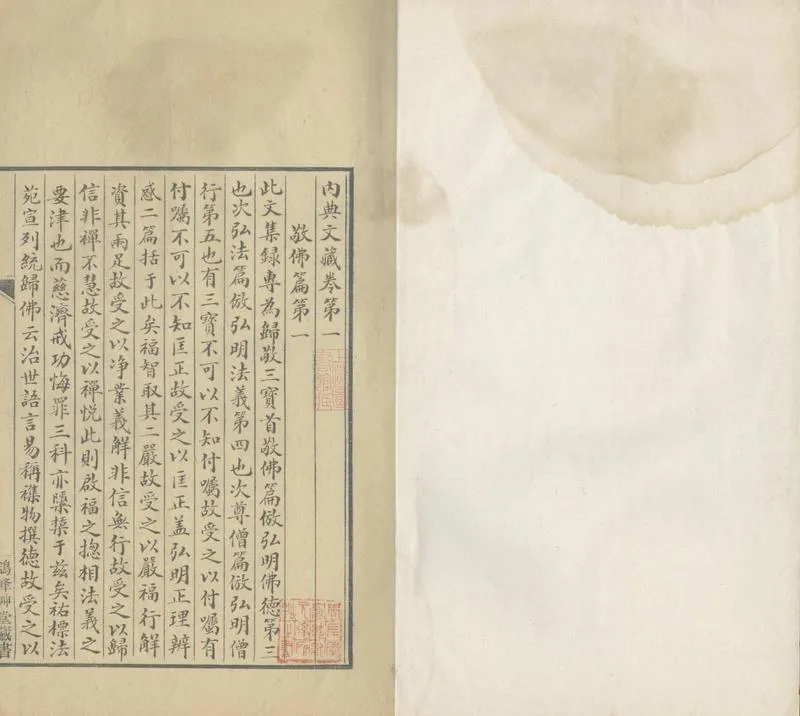 內典文藏卷第一
敬佛篇第一
此文集録專為歸敬三寶首敬佛篇倣弘明佛德第三
也次弘法篇倣弘明法義第四也次尊僧篇倣弘明僧
行第五也有三寶不可以不知付囑故受之以付囑有
付囑不可以不知匡正故受之以匡正盖弘明正理辨
惑二篇括于此矣福智取其二嚴故受之以嚴福行解
資其兩足故受之以净業義解非信無行故受之以歸
信非禪不慧故受之以禪悦此則啟福之揔相法義之
要津也而慈濟戒功悔罪三科亦檃栝于兹矣祐標法
苑宣列統歸佛云治世語言易稱襍物撰德故受之以
堂藏書